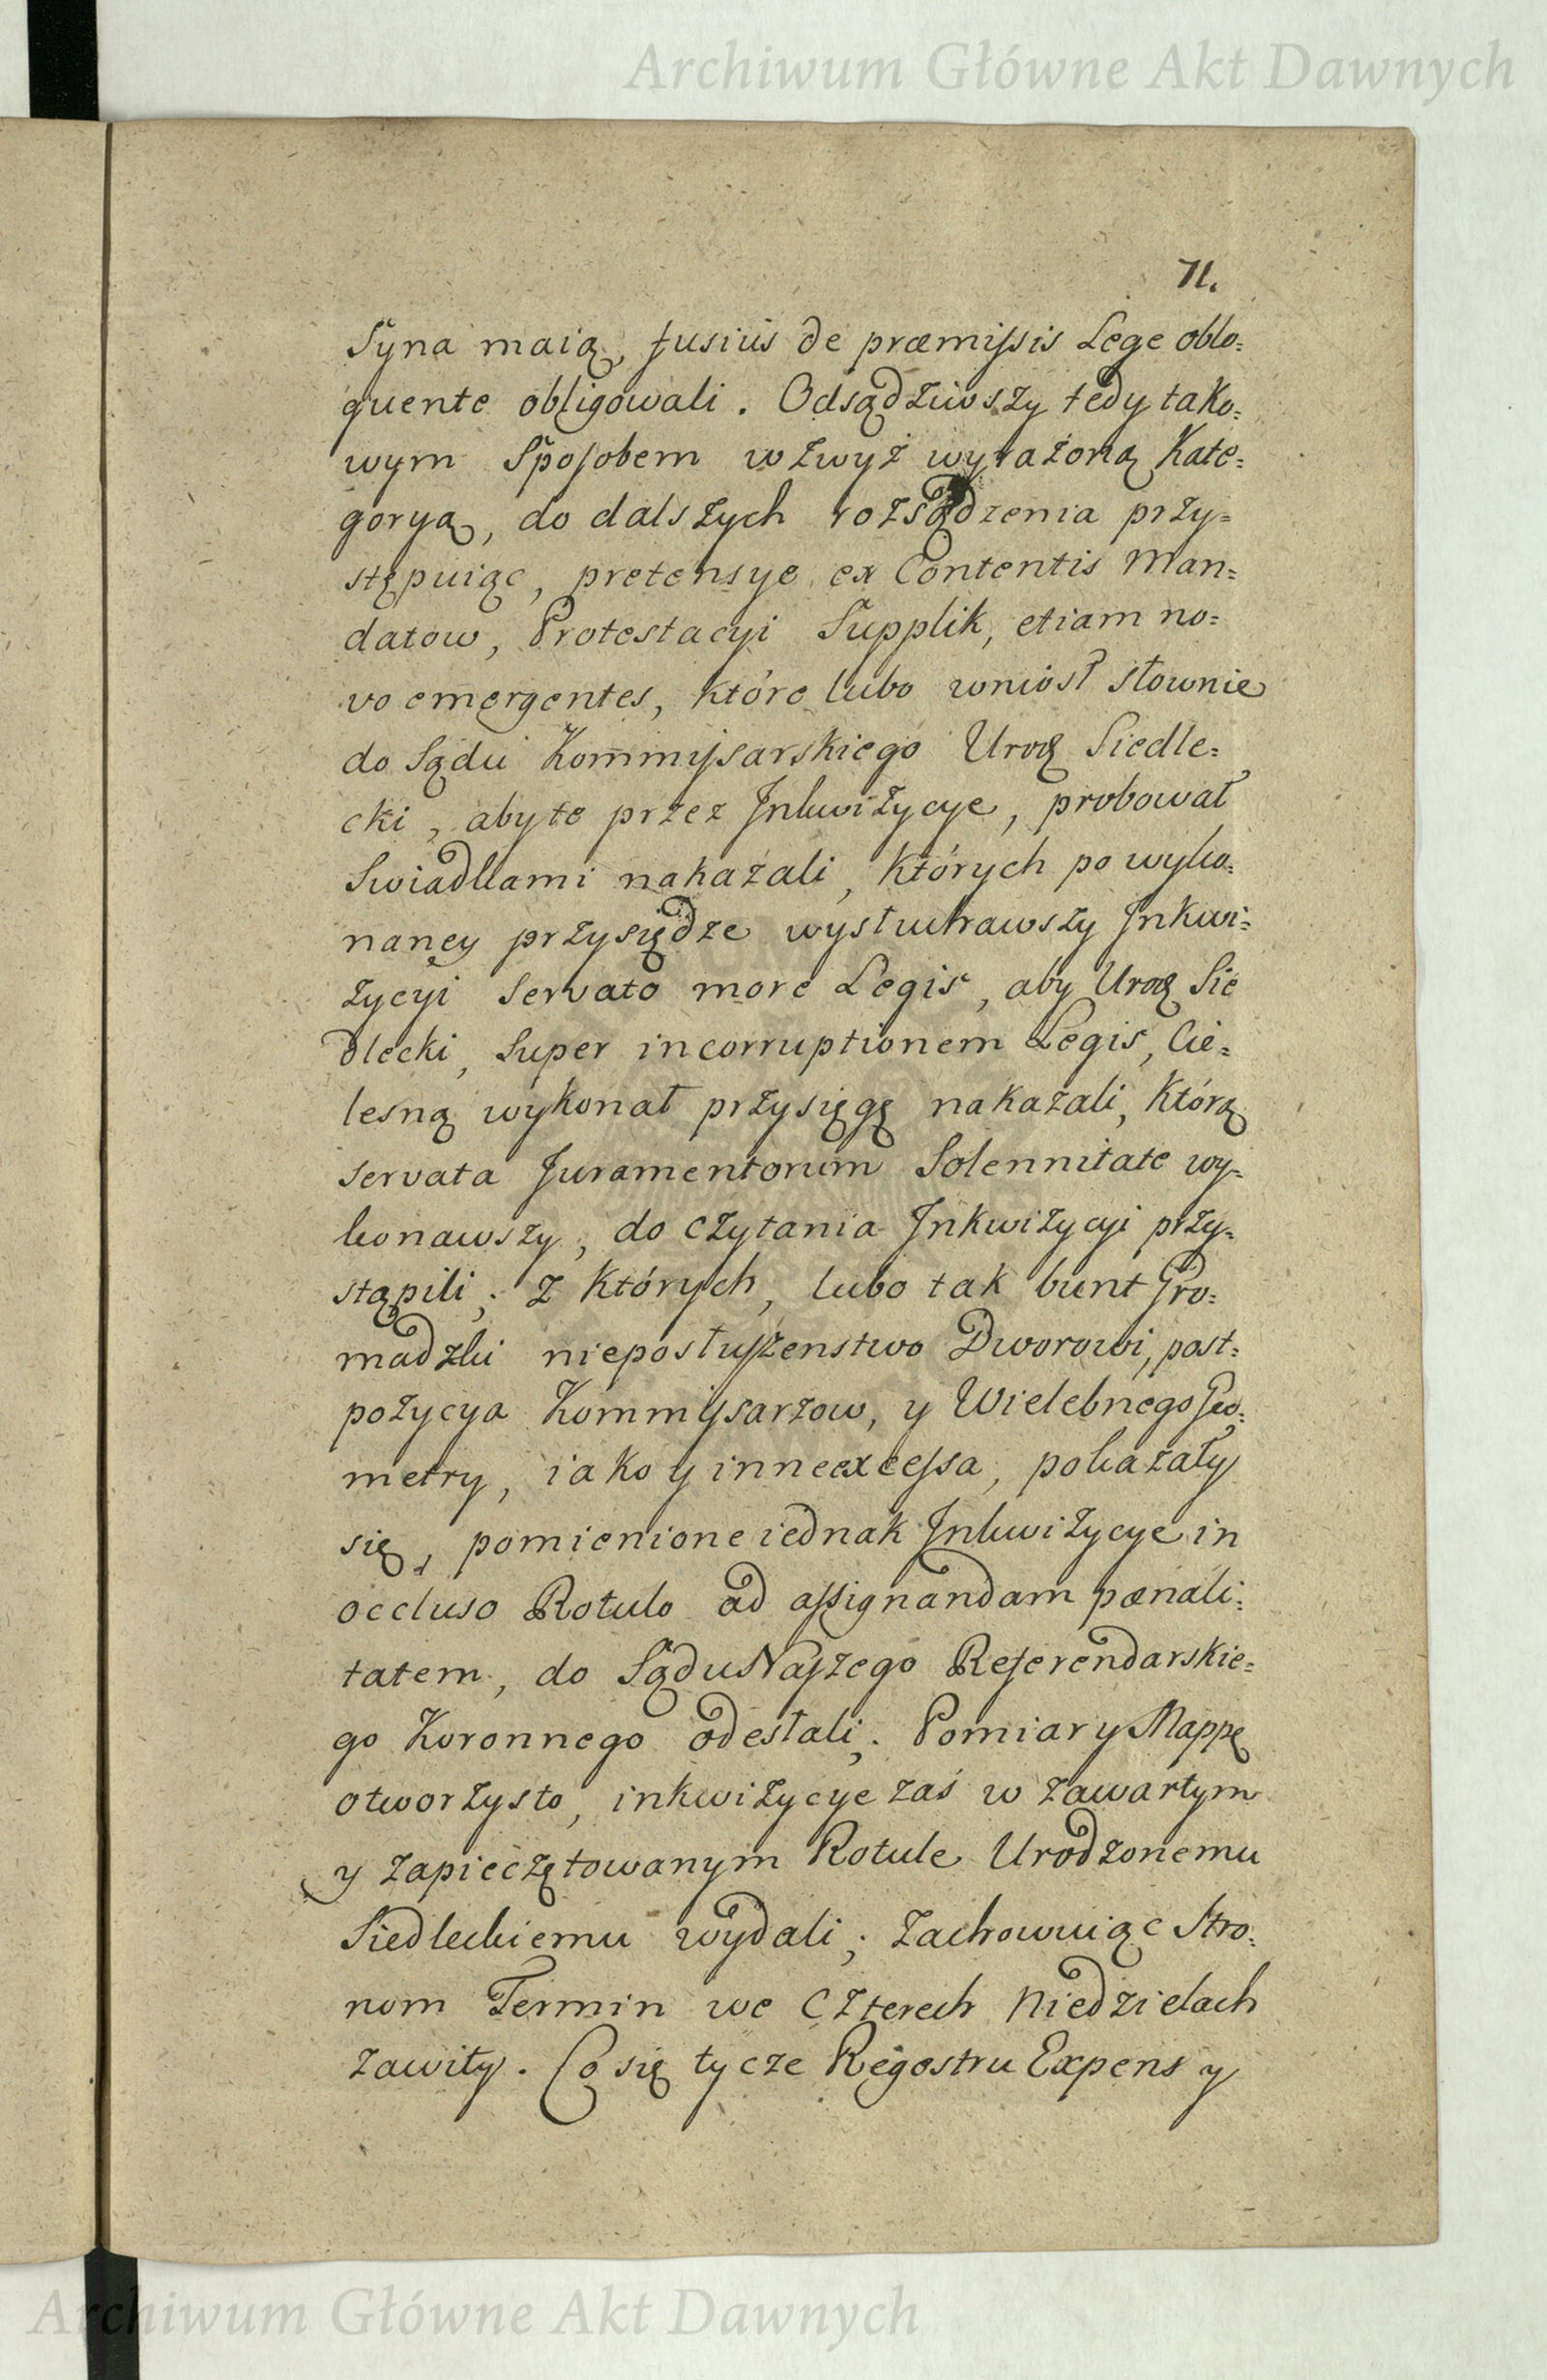 Archiwum Główne Akt Dawnych
71.
Syna maią, fusius de præmissis Lege oblo=
quente obligowali. Odsądziwszy tedy tako=
wym Sposobem wzwyż wyrażoną Kate=
goryą, do dalszych rozsądzenia przy=
stępuiąc, pretensye ex Contentis Man=
datow, Protestacyi Supplik, etiam no=
vo emergentes, które lubo wniosł słownie
do Sądu Kommissarskiego Urod Siedle=
cki, aby te przez Jnkwizycye, probował
Swiadkami nakazali, których po wyko=
naney przysiędze wysłuchawszy Jnkwi=
zycyi servato more Legis, aby Urod Sie
dlecki, super incorruptionem Legis, Cie=
lesną wykonał przysięgę nakazali, którą
servata Juramentorum Solennitate wy=
konawszy, do czytania Jnkwizycyi przy=
stąpili; z których, lubo tak bunt Gro=
madzki nieposłuszenstwo Dworowi, post=
pozycya Kommissarzow, y Wielebnego Geo=
metry, iako y inne excessa, pokazały
się, pomienione iednak Jnkwizycye in
occluso Rotulo ad assignandam pænali=
tatem, do Sądu Naszego Referendarskie=
go Koronnego odesłali. Pomiar y Mappę
otworzysto, inkwizycye zaś w zawartym
y zapieczętowanym Rotule Urodzonemu
Siedleckiemu wydali; zachowuiąc Stro=
nom Termin we czterech Niedzielach
zawity. Co się tycze Regestru Expens y
Archiwum Główne Akt Dawnych